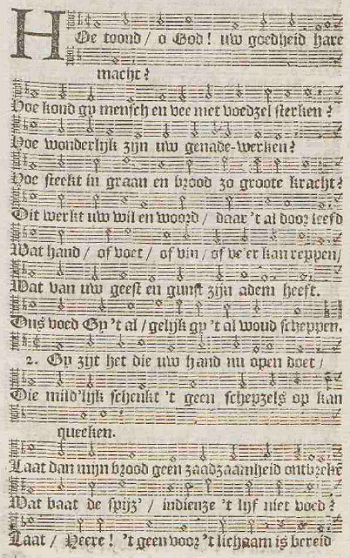 HOe toond / o God! uw goedheid hare
macht?
Hoe kond gy mensch en vee met voedzel sterken?
Hoe wonderlyk zijn uw genade-werken?
Hoe steekt in graan en brood zo groote kracht?
Dit werkt uw wil en woord / daar 't al door leefd
Wat hand / of voet / of vin / of ve'er kan reppen /
Wat van uw geest en gunst zijn adem heeft.
Ons voed Gy 't al / gelijk gy 't al woud scheppen.
2. Gy zyt het die uw hand nu open doet /
Die mild'lijk schenkt 't geen schepzels op kan
queeken.
Laat dan mijn brood geen zaadzaamheid ontbrekē
Wat baat de spijz' / indienze 't lijf niet voed?
Laat / Heere! 't geen voor 't lichaam is bereid